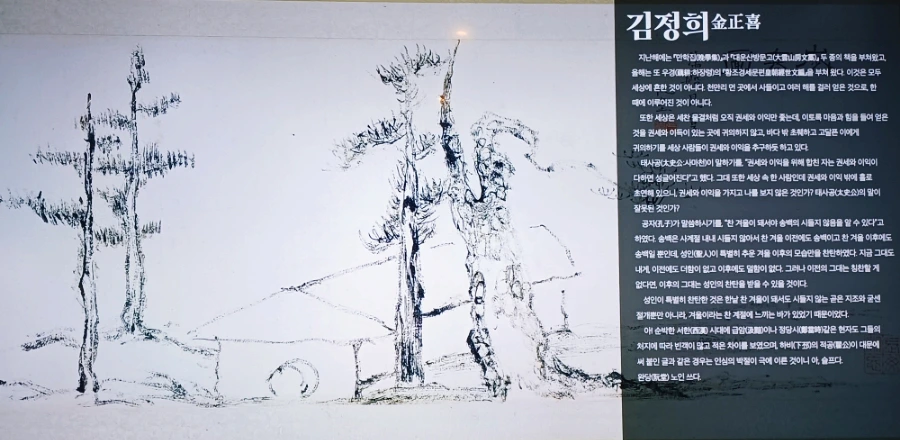 김정희金正喜
지난해에는 『만학집(晩學集)』과 『대운산방문고(大雲山房文藁)』 두 종의 책을 부쳐왔고,
올해는 또 우경(藕耕:하장령)의 『황조경세문편皇朝經世文編』을 부쳐 왔다. 이것은 모두
세상에 흔한 것이 아니다. 천만리 먼 곳에서 사들이고 여러 해를 걸러 얻은 것으로, 한
때에 이루어진 것이 아니다.
또한 세상은 세찬 물결처럼 오직 권세와 이익만 좇는데, 이토록 마음과 힘을 들여 얻은
것을 권세와 이득이 있는 곳에 귀의하지 않고, 바다 밖 초췌하고 고달픈 이에게
귀의하기를 세상 사람들이 권세와 이익을 추구하듯 하고 있다.
태사공(太史公:사마천)이 말하기를, "권세와 이익을 위해 합친 자는 권세와 이익이
다하면 성글어진다"고 했다. 그대 또한 세상 속 한 사람인데 권세와 이익 밖에 홀로
초연해 있으니, 권세와 이익을 가지고 나를 보지 않은 것인가? 태사공(太史公)의 말이
잘못된 것인가?
공자(孔子)가 말씀하시기를, "찬 겨울이 돼서야 송백의 시들지 않음을 알 수 있다"고
하였다. 송백은 사계절 내내 시들지 않아서 찬 겨울 이전에도 송백이고 찬 겨울 이후에도
송백일 뿐인데, 성인(聖人)이 특별히 추운 겨울 이후의 모습만을 찬탄하였다. 지금 그대도
내게, 이전에도 더함이 없고 이후에도 덜함이 없다. 그러나 이전의 그대는 칭찬할 게
없다면, 이후의 그대는 성인의 찬탄을 받을 수 있을 것이다.
성인이 특별히 찬탄한 것은 한낱 찬 겨울이 돼서도 시들지 않는 곧은 지조와 굳센
절개뿐만 아니라, 겨울이라는 찬 계절에 느끼는 바가 있었기 때문이었다.
아! 순박한 서한(西漢) 시대에 급암(汲黯)이나 정당시(鄭當時)같은 현자도 그들의
처지에 따라 빈객이 많고 적은 차이를 보였으며, 하비(下邳)의 적공(翟公)이 대문에
써 붙인 글과 같은 경우는 인심의 박절이 극에 이른 것이니 아, 슬프다.
완당(阮堂) 노인 쓰다.